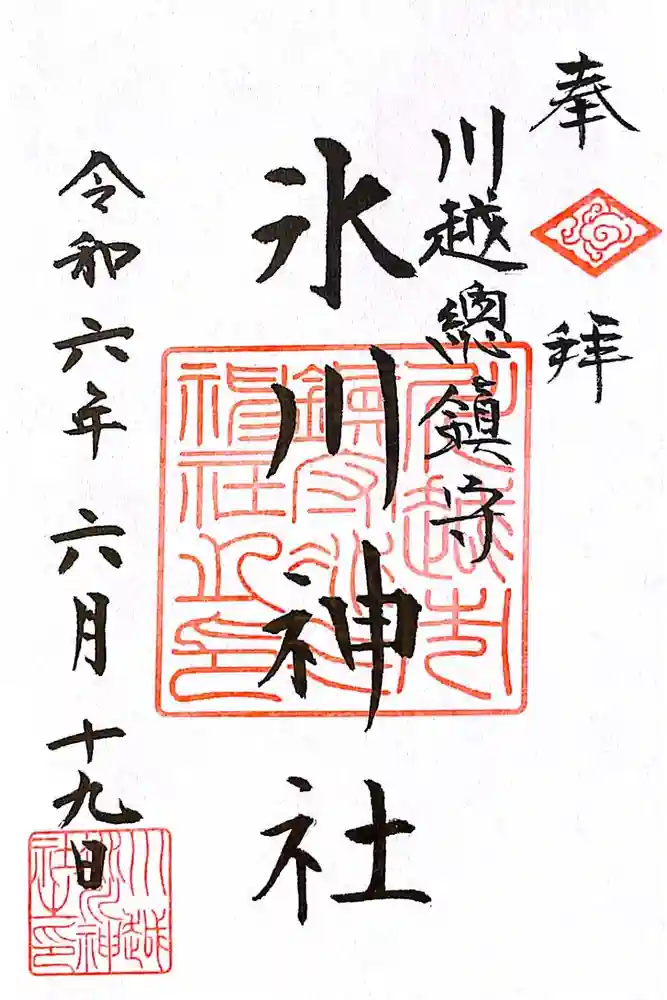 奉拝
川越總鎮守
氷川神社
令和六年六月十九日
川越
氷川神
社之印